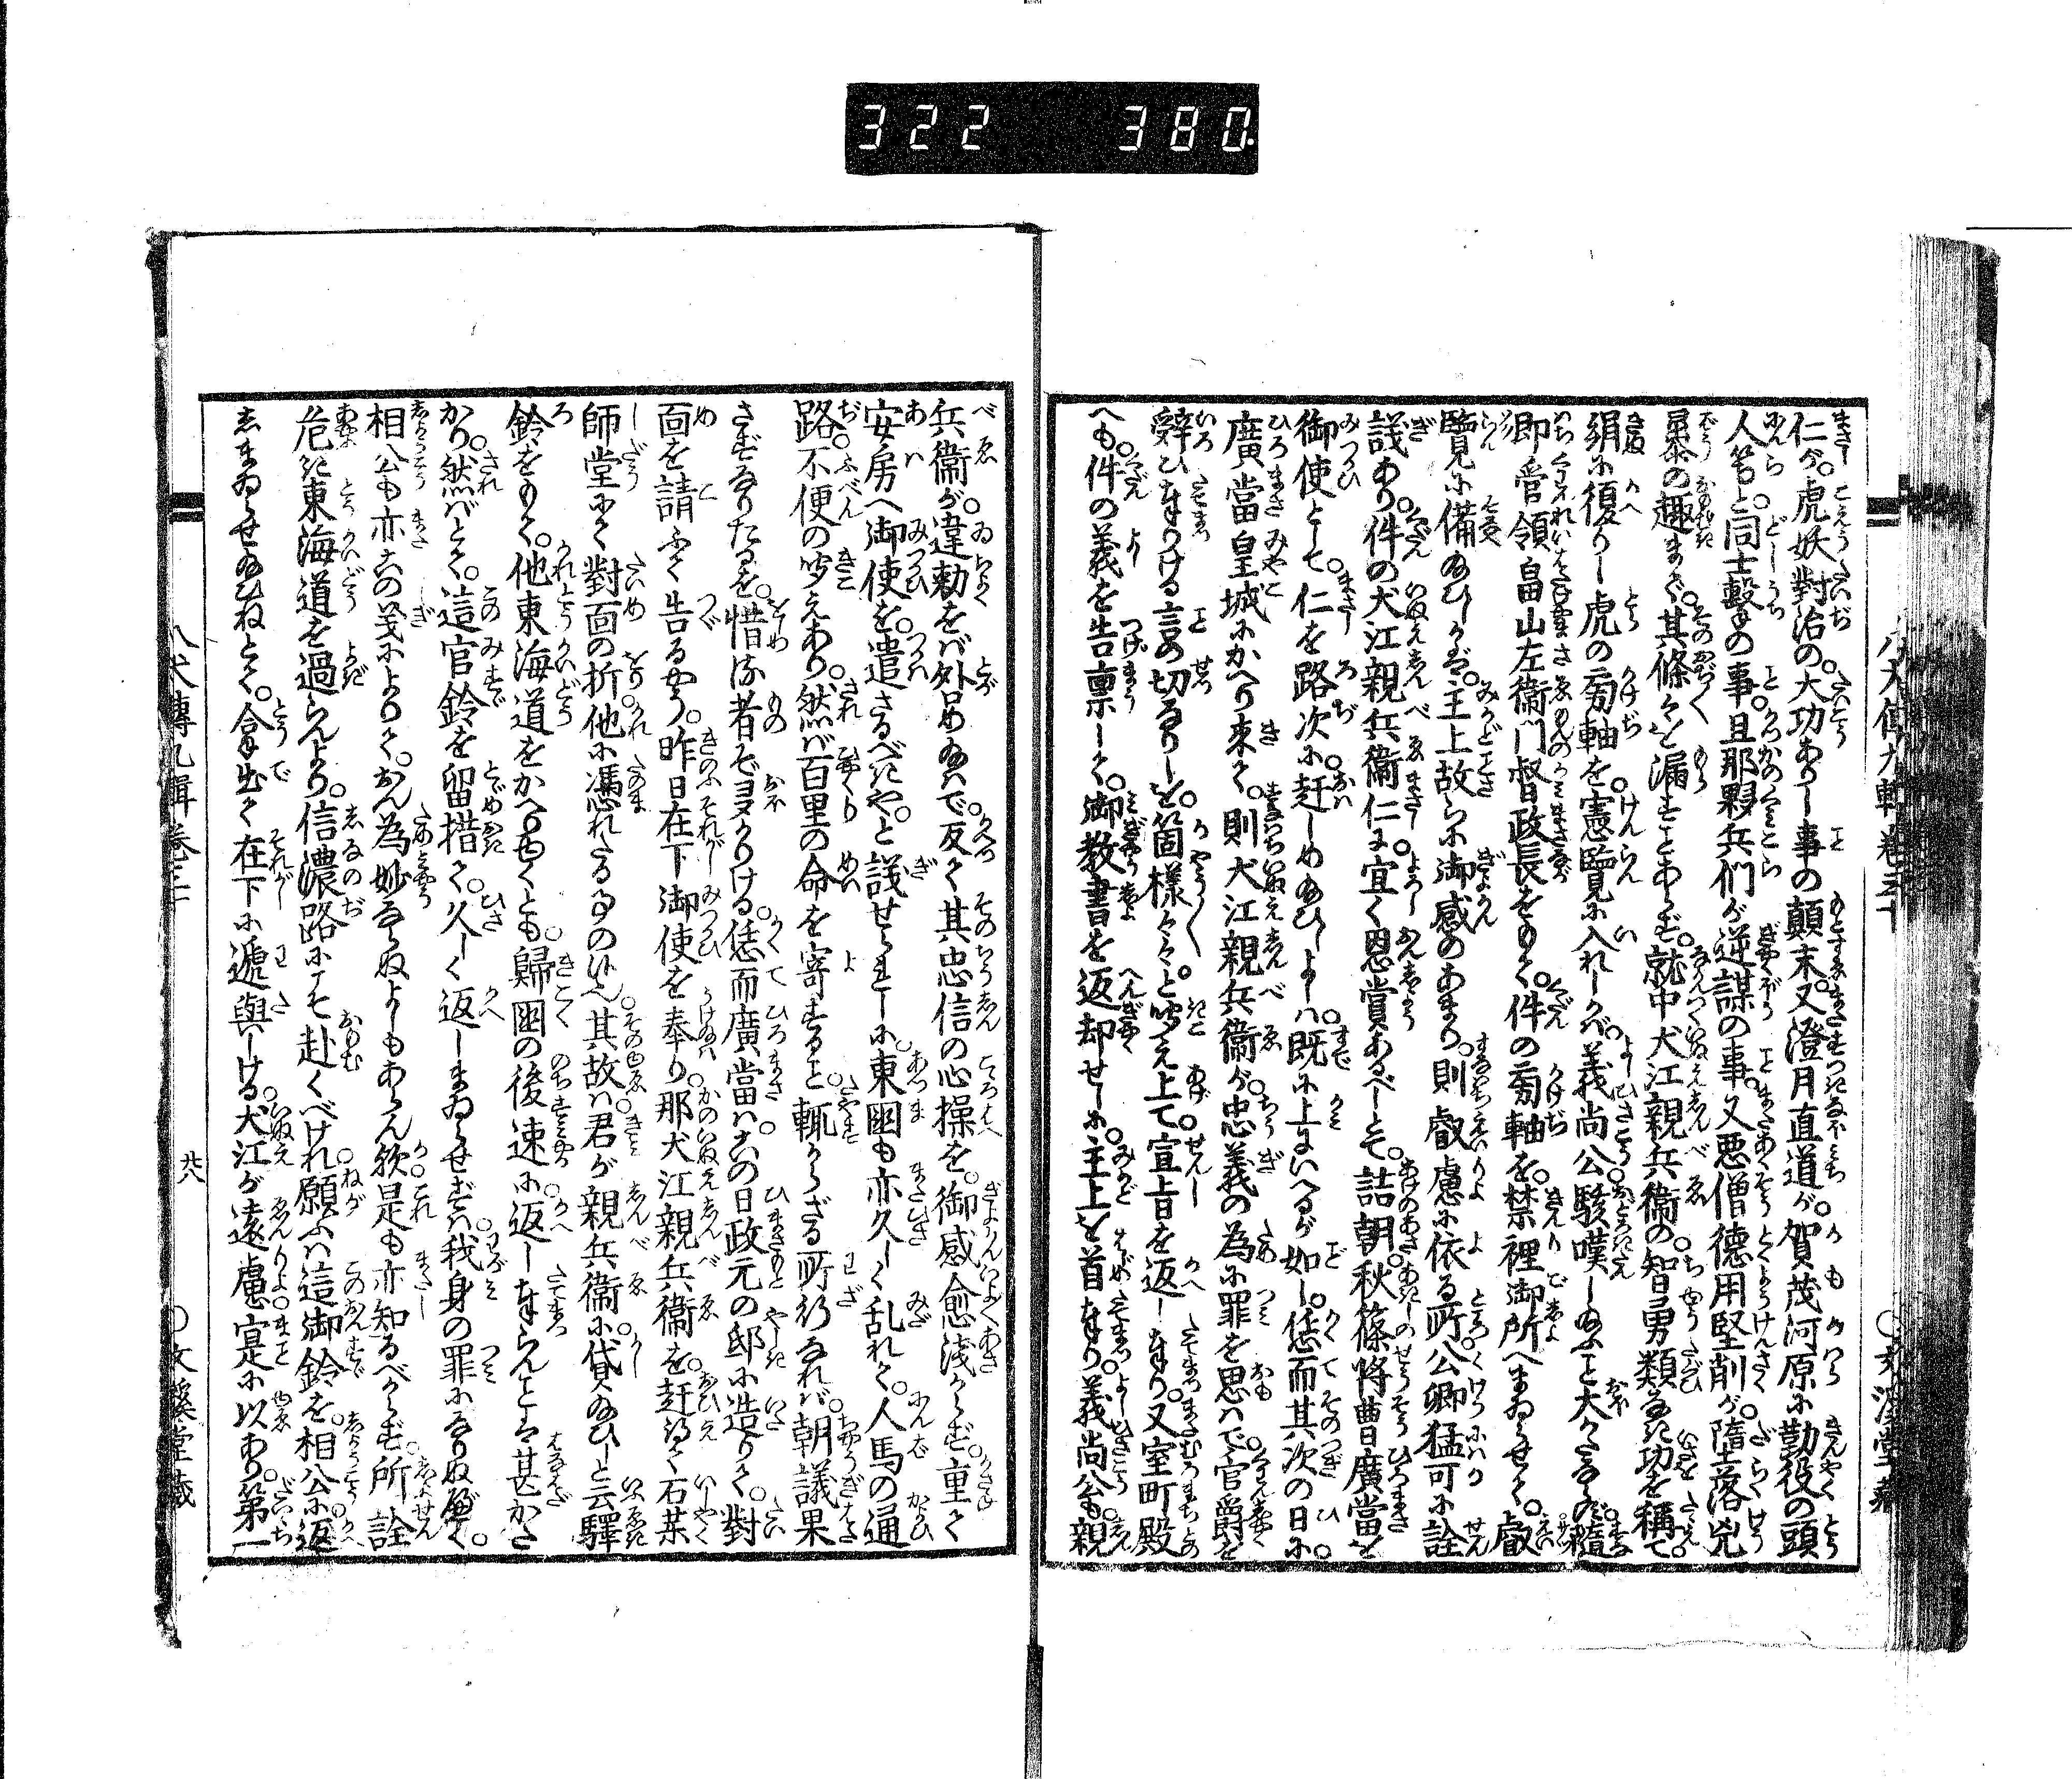 322 380
仁が。虎妖對治の。大功ありし事の顛末。又澄月直道が。賀茂河原に勤役の頭
人等と。同士撃の事。且那夥兵們が逆謀の事。又悪僧徳用堅削が。墮落兇
暴の趣まで。其條々を漏すことあらず。就中犬江親兵衞の智勇類なき功を稱て。
絹に復りし虎の画軸を。憲覽に入れしかば。義尚公駭嘆し給ふこと大かたならず。
即管領畠山左衞門督政長をもて。件の画軸を。禁裡御所へまゐらせて。叡
覽に備給ひしかば。主上故らに御感のあまり。則叡慮に依る所。公卿猛可に詮
議あり。件の犬江親兵衞仁に。宜く恩賞あるべしとて。詰朝。秋篠將曹廣當を
御使として。仁を路次に。赶しめ給ひしよしは。既に上にいへるが如し。恁而其次の日に
廣當皇城にかへり來て。則犬江親兵衞が。忠義の為に罪を思はで。官爵を
辭ひまつりける言の切なりしを。箇樣々々。と聞え上て。宣旨を返しまつり。又室町殿
へも。件の義を告稟して。御教書を返却せしに。主上を首まつり。義尚公も。親
兵衞が。違勅をば外め給はで。反て其忠信の心操を。御感愈淺からず。重て
安房へ御使を。遣さるべきや。と議せられしに。東國も亦久しく乱れて。人馬の通
路。不便の聞えあり。然ば百里の命を寄すること。輒からざる所行なれば。朝議果
さずなりたるを。惜む者ぞ多かりける。恁而廣當は。この日政元の邸に造りて。對
面を請ふて告るやう。昨日在下御使を奉り。那犬江親兵衞を。赶ひ得て石藥
師堂にて對面の折。他に憑れたる事のはべり。其故は君が親兵衞に。貸給ひしと云驛
鈴をもて。他東海道をかへるとも。歸國の後速に返しまつらんことは甚かた
かり。然ばとて。這官鈴を留措て。久しく返しまゐらせずは。我身の罪になりぬべく。
相公も亦この義によりて。おん為妙ならぬよしもあらん歟。是も亦知るべからず。所詮
危き東海道を過らんより。信濃路にこそ赴くべけれ。願ふは這御鈴を。相公に返
しまゐらせ給ひねとて。拿出て在下に遞與しける。犬江が遠慮寔に以あり。第一
八犬傳九輯 卷三十
廿八
○文溪堂藏